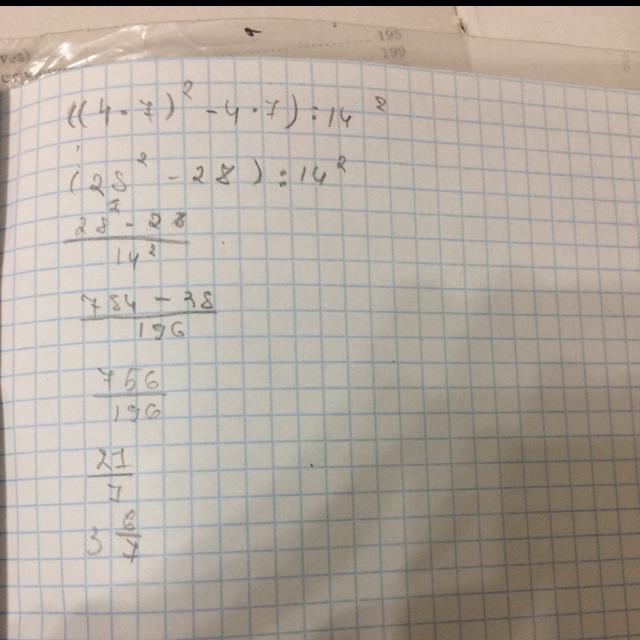 195
199
((4·7)² -4·7):14²
(28² -28):14²
28²-28
14²
784 -28
196
756
196
27
7
3 6/7